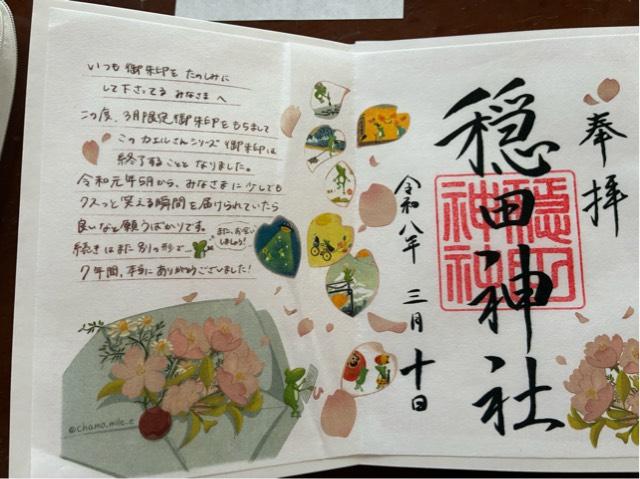 いつも御朱印をたのしみに
して下さってる みなさまへ
この度、3月限定御朱印をもちまして
このカエルさんシリーズ御朱印は
終了することと なりました。
令和元年5月から、みなさまに少しでも
クスっと笑える瞬間を届けられていたら
良いなと願うばかりです。
続きはまた別の形で…
また、お会い
しましょう!
7年間、本当にありがとうございました!
@chamo.mile.e
奉拝
穏田神社
穏田
神社
令和八年 三月 十日